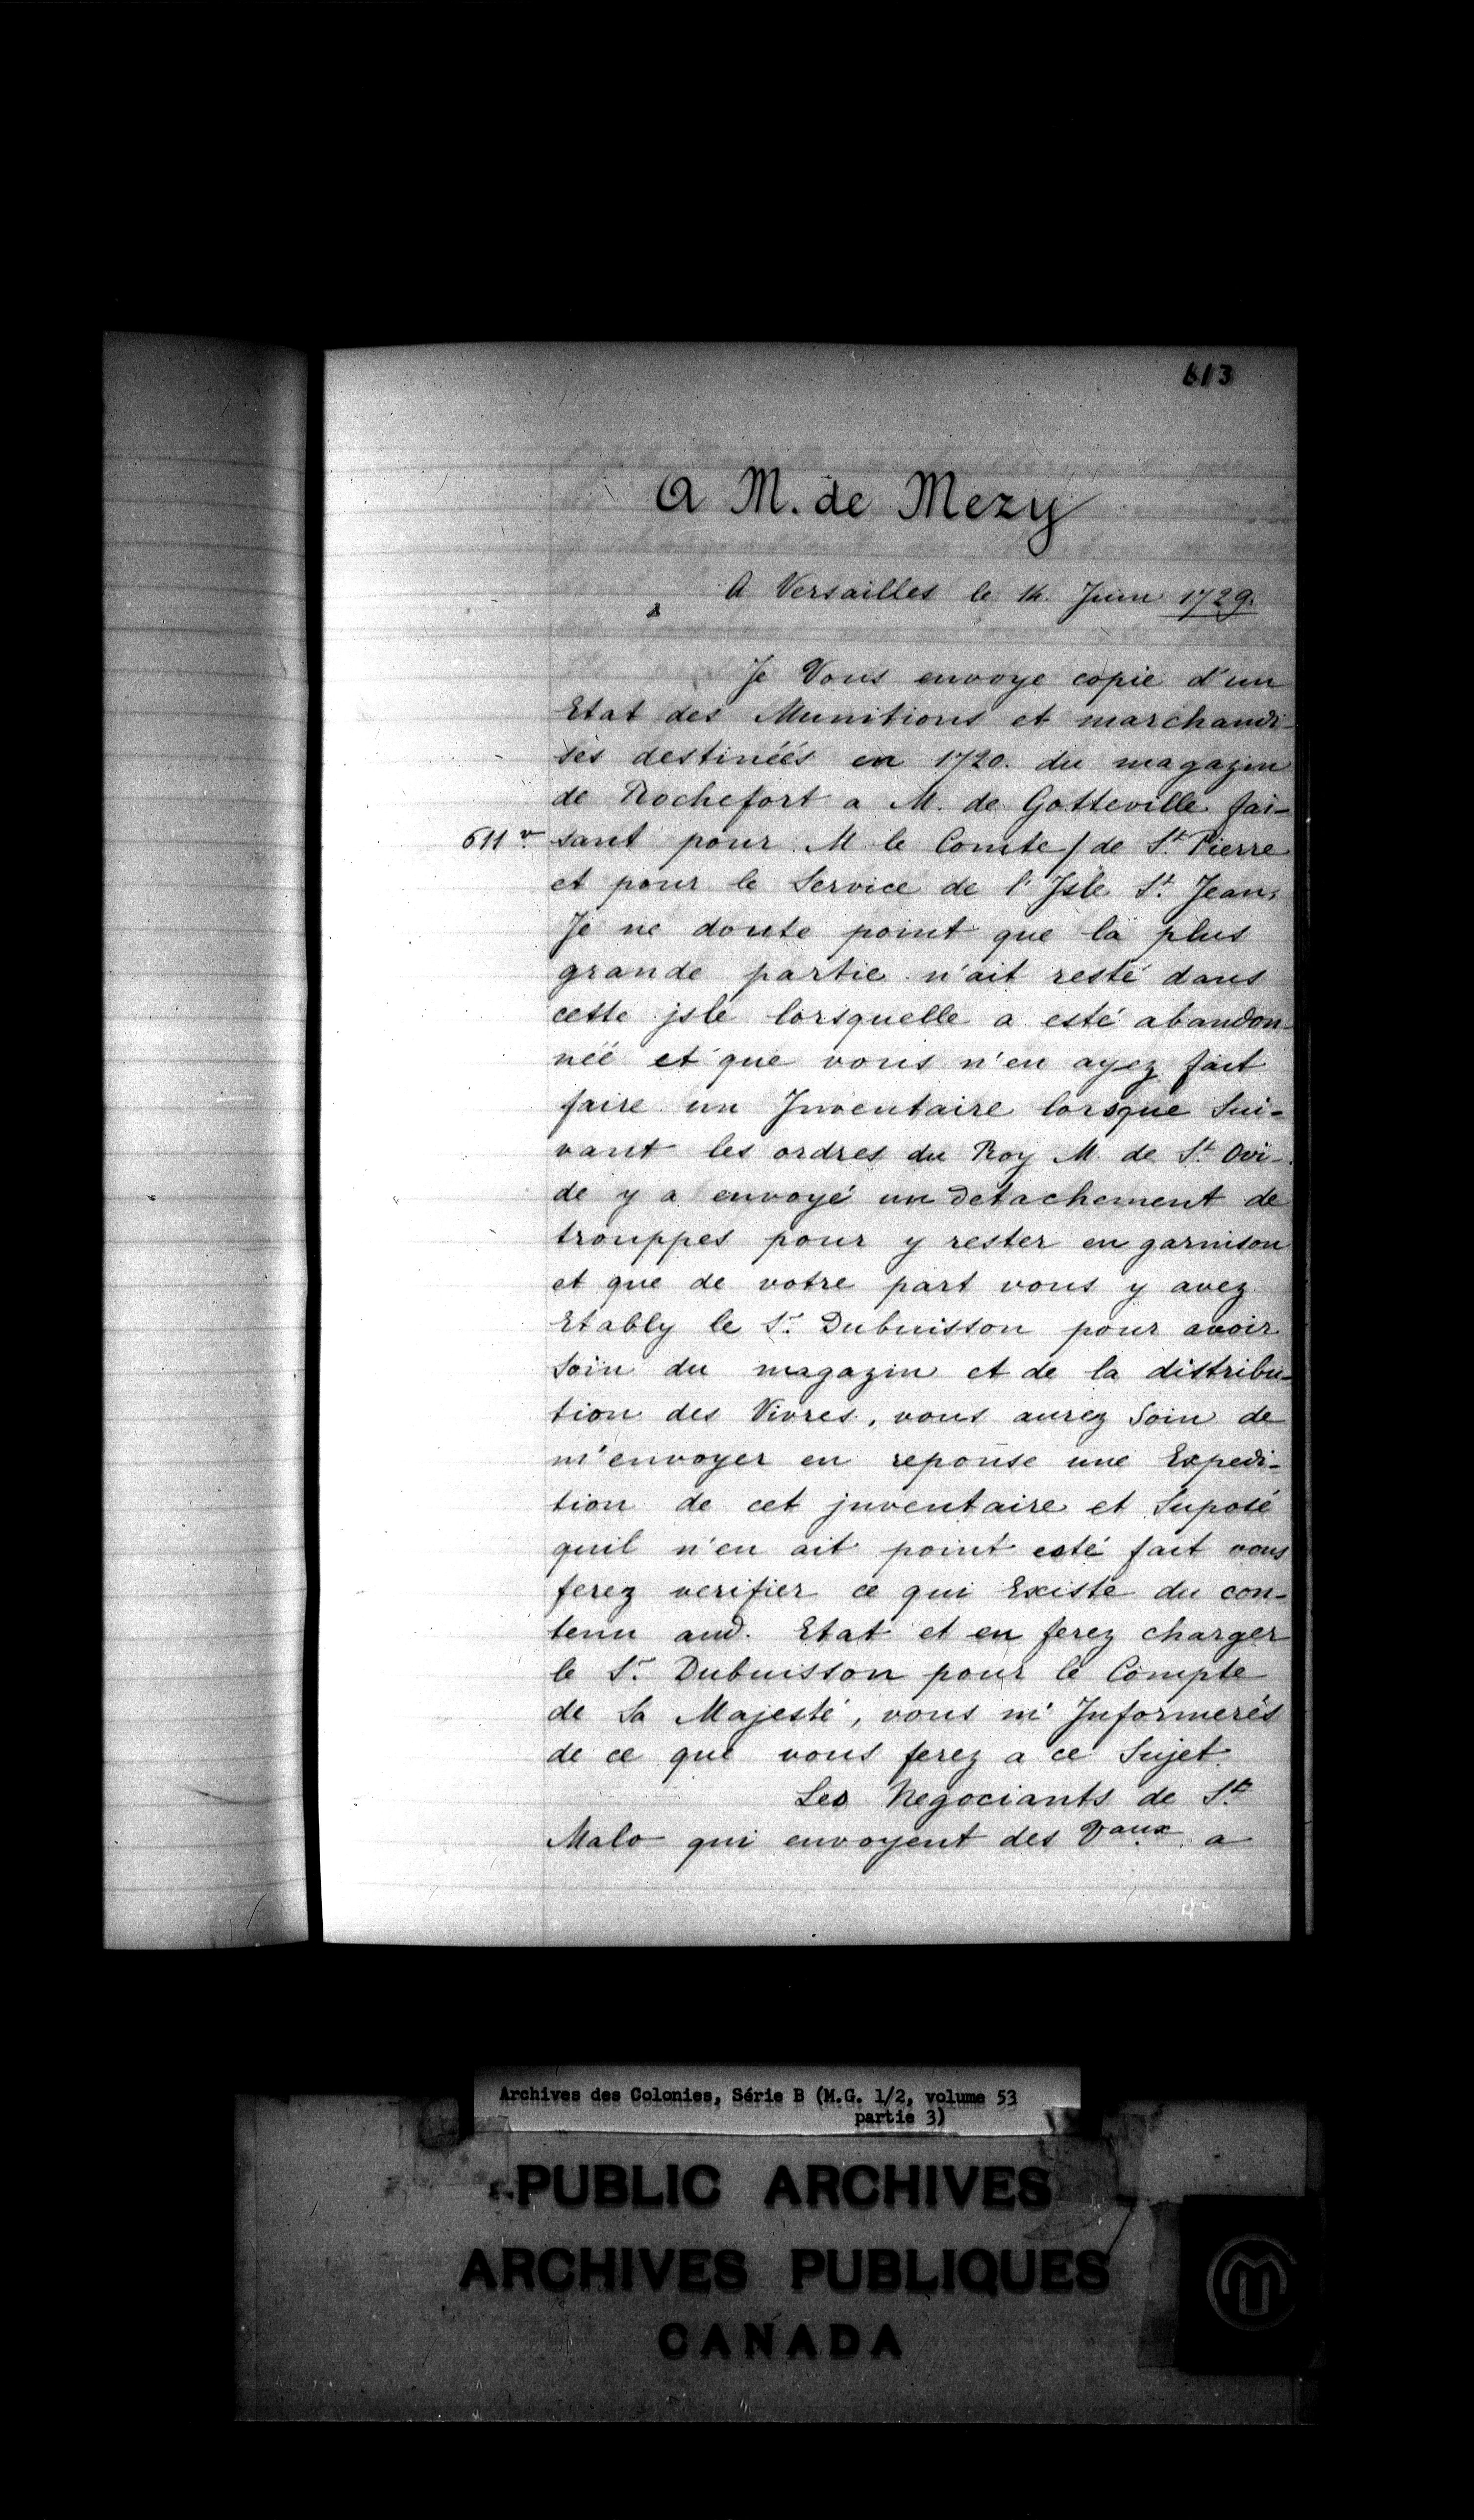 613
A M. de Mezy
A Versailles le 14. Juin 1729.
Je Vous envoye copie d'un
Etat des Munitions et marchandi-
ses destinéés en 1720. du magazin
de Rochefort a M. de Gotteville fai-
611 v. sant pour M le Comte / de St. Pierre
et pour le Service de l'Jsle St. Jean,
Je ne doute point que la plus
grande partie n'ait resté dans
cette jsle lorsquelle a esté abandon-
néé et que vous n'en ayez fait
faire un Jnventaire lorsque Sui-
vant les ordres du Roy M. de St. Ovi-
de y a envoyé un detachement de
trouppes pour y rester en garnison
et que de votre part vous y avez
Etably le Sr. Dubuisson pour avoir
Soin du magazin et de la distribu-
tion des Vivres, vous aurez Soin de
m'envoyer en reponse une Expedi-
tion de cet jnventaire et Suposé
quil n'en ait point esté fait vous
ferez verifier ce qui Existe du con-
tenu aud. Etat et en ferez charger
le Sr. Dubuisson pour le Compte
de Sa Majesté, vous m'Jnformerés
de ce que vous ferez a ce Sujet.
Les Negociants de St.
Malo qui envoyent des Vaux. a
Archives des Colonies, Série B (M.G. 1/2, volume 53
partie 3)
PUBLIC ARCHIVES
ARCHIVES PUBLIQUES
CANADA